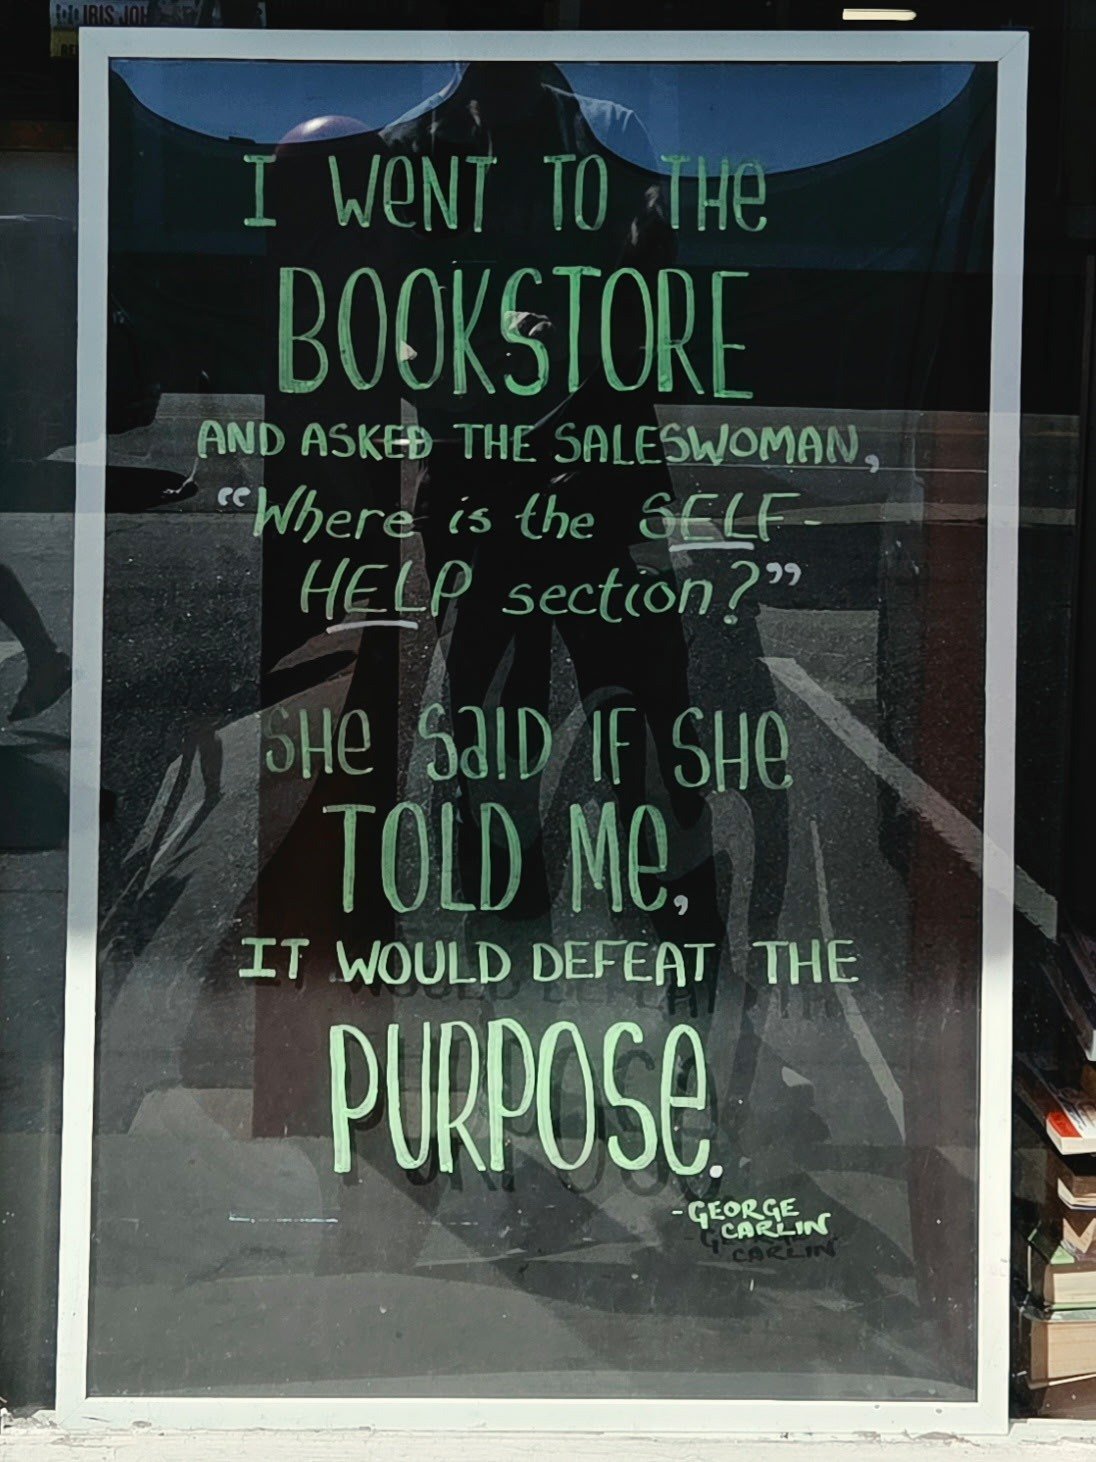 IRIS JOH
I WeNT TO THe
BOOKSTORE
AND ASKED THE SALESWOMAN,
“Where is the SELF-
HELP section?”
SHe SaID IF SHe
TOLD Me,
IT WOULD DEFEAT THE
PURPOSe.
-GEORGE
CARLIN